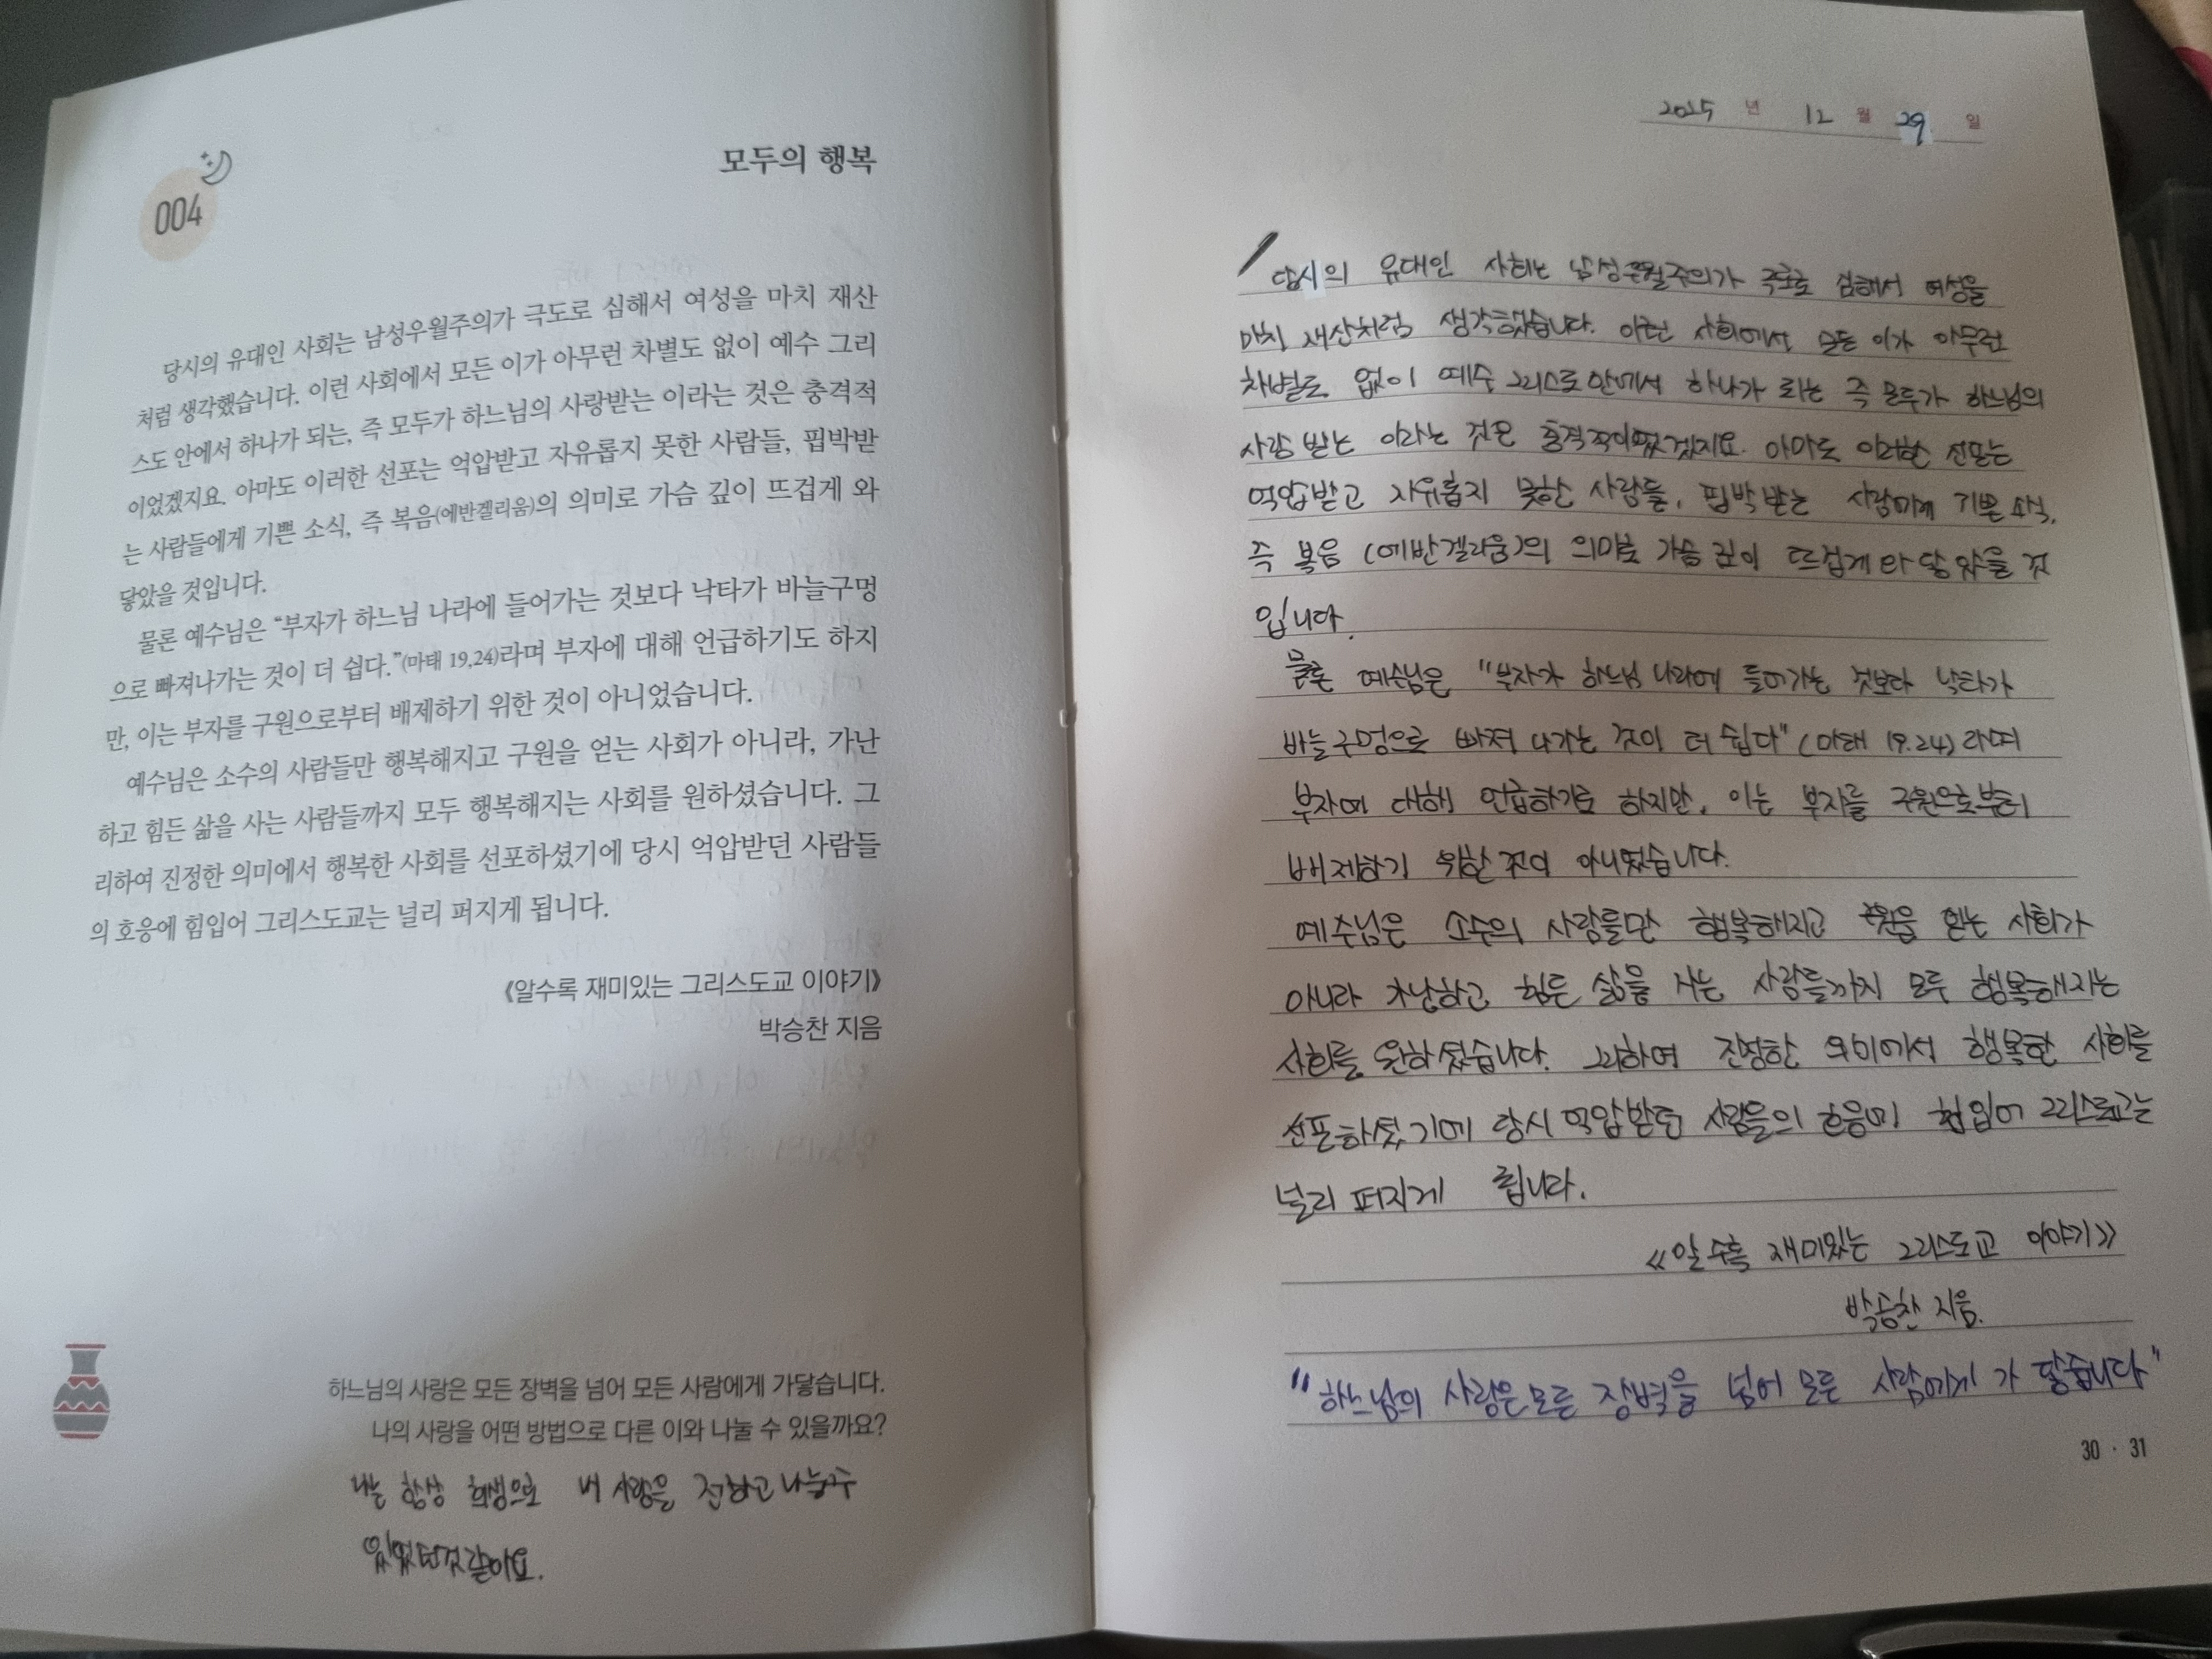 004
모두의 행복
당시의 유대인 사회는 남성우월주의가 극도로 심해서 여성을 마치 재산
처럼 생각했습니다. 이런 사회에서 모든 이가 아무런 차별도 없이 예수 그리
스도 안에서 하나가 되는, 즉 모두가 하느님의 사랑받는 이라는 것은 충격적
이었겠지요. 아마도 이러한 선포는 억압받고 자유롭지 못한 사람들, 핍박받
는 사람들에게 기쁜 소식, 즉 복음(에반겔리움)의 의미로 가슴 깊이 뜨겁게 와
닿았을 것입니다.
물론 예수님은 “부자가 하느님 나라에 들어가는 것보다 낙타가 바늘구멍
으로 빠져나가는 것이 더 쉽다.”(마태 19,24)라며 부자에 대해 언급하기도 하지
만, 이는 부자를 구원으로부터 배제하기 위한 것이 아니었습니다.
예수님은 소수의 사람들만 행복해지고 구원을 얻는 사회가 아니라, 가난
하고 힘든 삶을 사는 사람들까지 모두 행복해지는 사회를 원하셨습니다. 그
리하여 진정한 의미에서 행복한 사회를 선포하셨기에 당시 억압받던 사람들
의 호응에 힘입어 그리스도교는 널리 퍼지게 됩니다.
《알수록 재미있는 그리스도교 이야기》
박승찬 지음
하느님의 사랑은 모든 장벽을 넘어 모든 사람에게 가닿습니다.
나의 사랑을 어떤 방법으로 다른 이와 나눌 수 있을까요?
나는 항상 희생으로 내 사랑을 전하고 나눌수
있었던것같아요.
2025 년 12 월 29 일
당시의 유대인 사회는 남성우월주의가 극도로 심해서 여성을
마치 재산처럼 생각했습니다. 이런 사회에서 모든 이가 아무런
차별도 없이 예수 그리스도 안에서 하나가 되는 즉 모두가 하느님의
사랑 받는 이라는 것은 충격적이었겠지요. 아마도 이러한 선포는
억압받고 자유롭지 못한 사람들, 핍박 받는 사람에게 기쁜 소식,
즉 복음 (에반겔리움)의 의미로 가슴 깊이 뜨겁게 와 닿았을 것
입니다.
물론 예수님은 "부자가 하느님 나라에 들어가는 것보다 낙타가
바늘구멍으로 빠져 나가는 것이 더 쉽다" (마태 19.24) 라며
부자에 대해 언급하기도 하지만, 이는 부자를 구원으로부터
배제하기 위한 것이 아니었습니다.
예수님은 소수의 사람들만 행복해지고 구원을 얻는 사회가
아니라 가난하고 힘든 삶을 사는 사람들까지 모두 행복해지는
사회를 원하셨습니다. 그리하여 진정한 의미에서 행복한 사회를
선포하셨기에 당시 억압받던 사람들의 호응에 힘입어 그리스도교는
널리 퍼지게 됩니다.
《알수록 재미있는 그리스도교 이야기》
박승찬 지음.
"하느님의 사랑은 모든 장벽을 넘어 모든 사람에게 가 닿습니다"
30 · 31